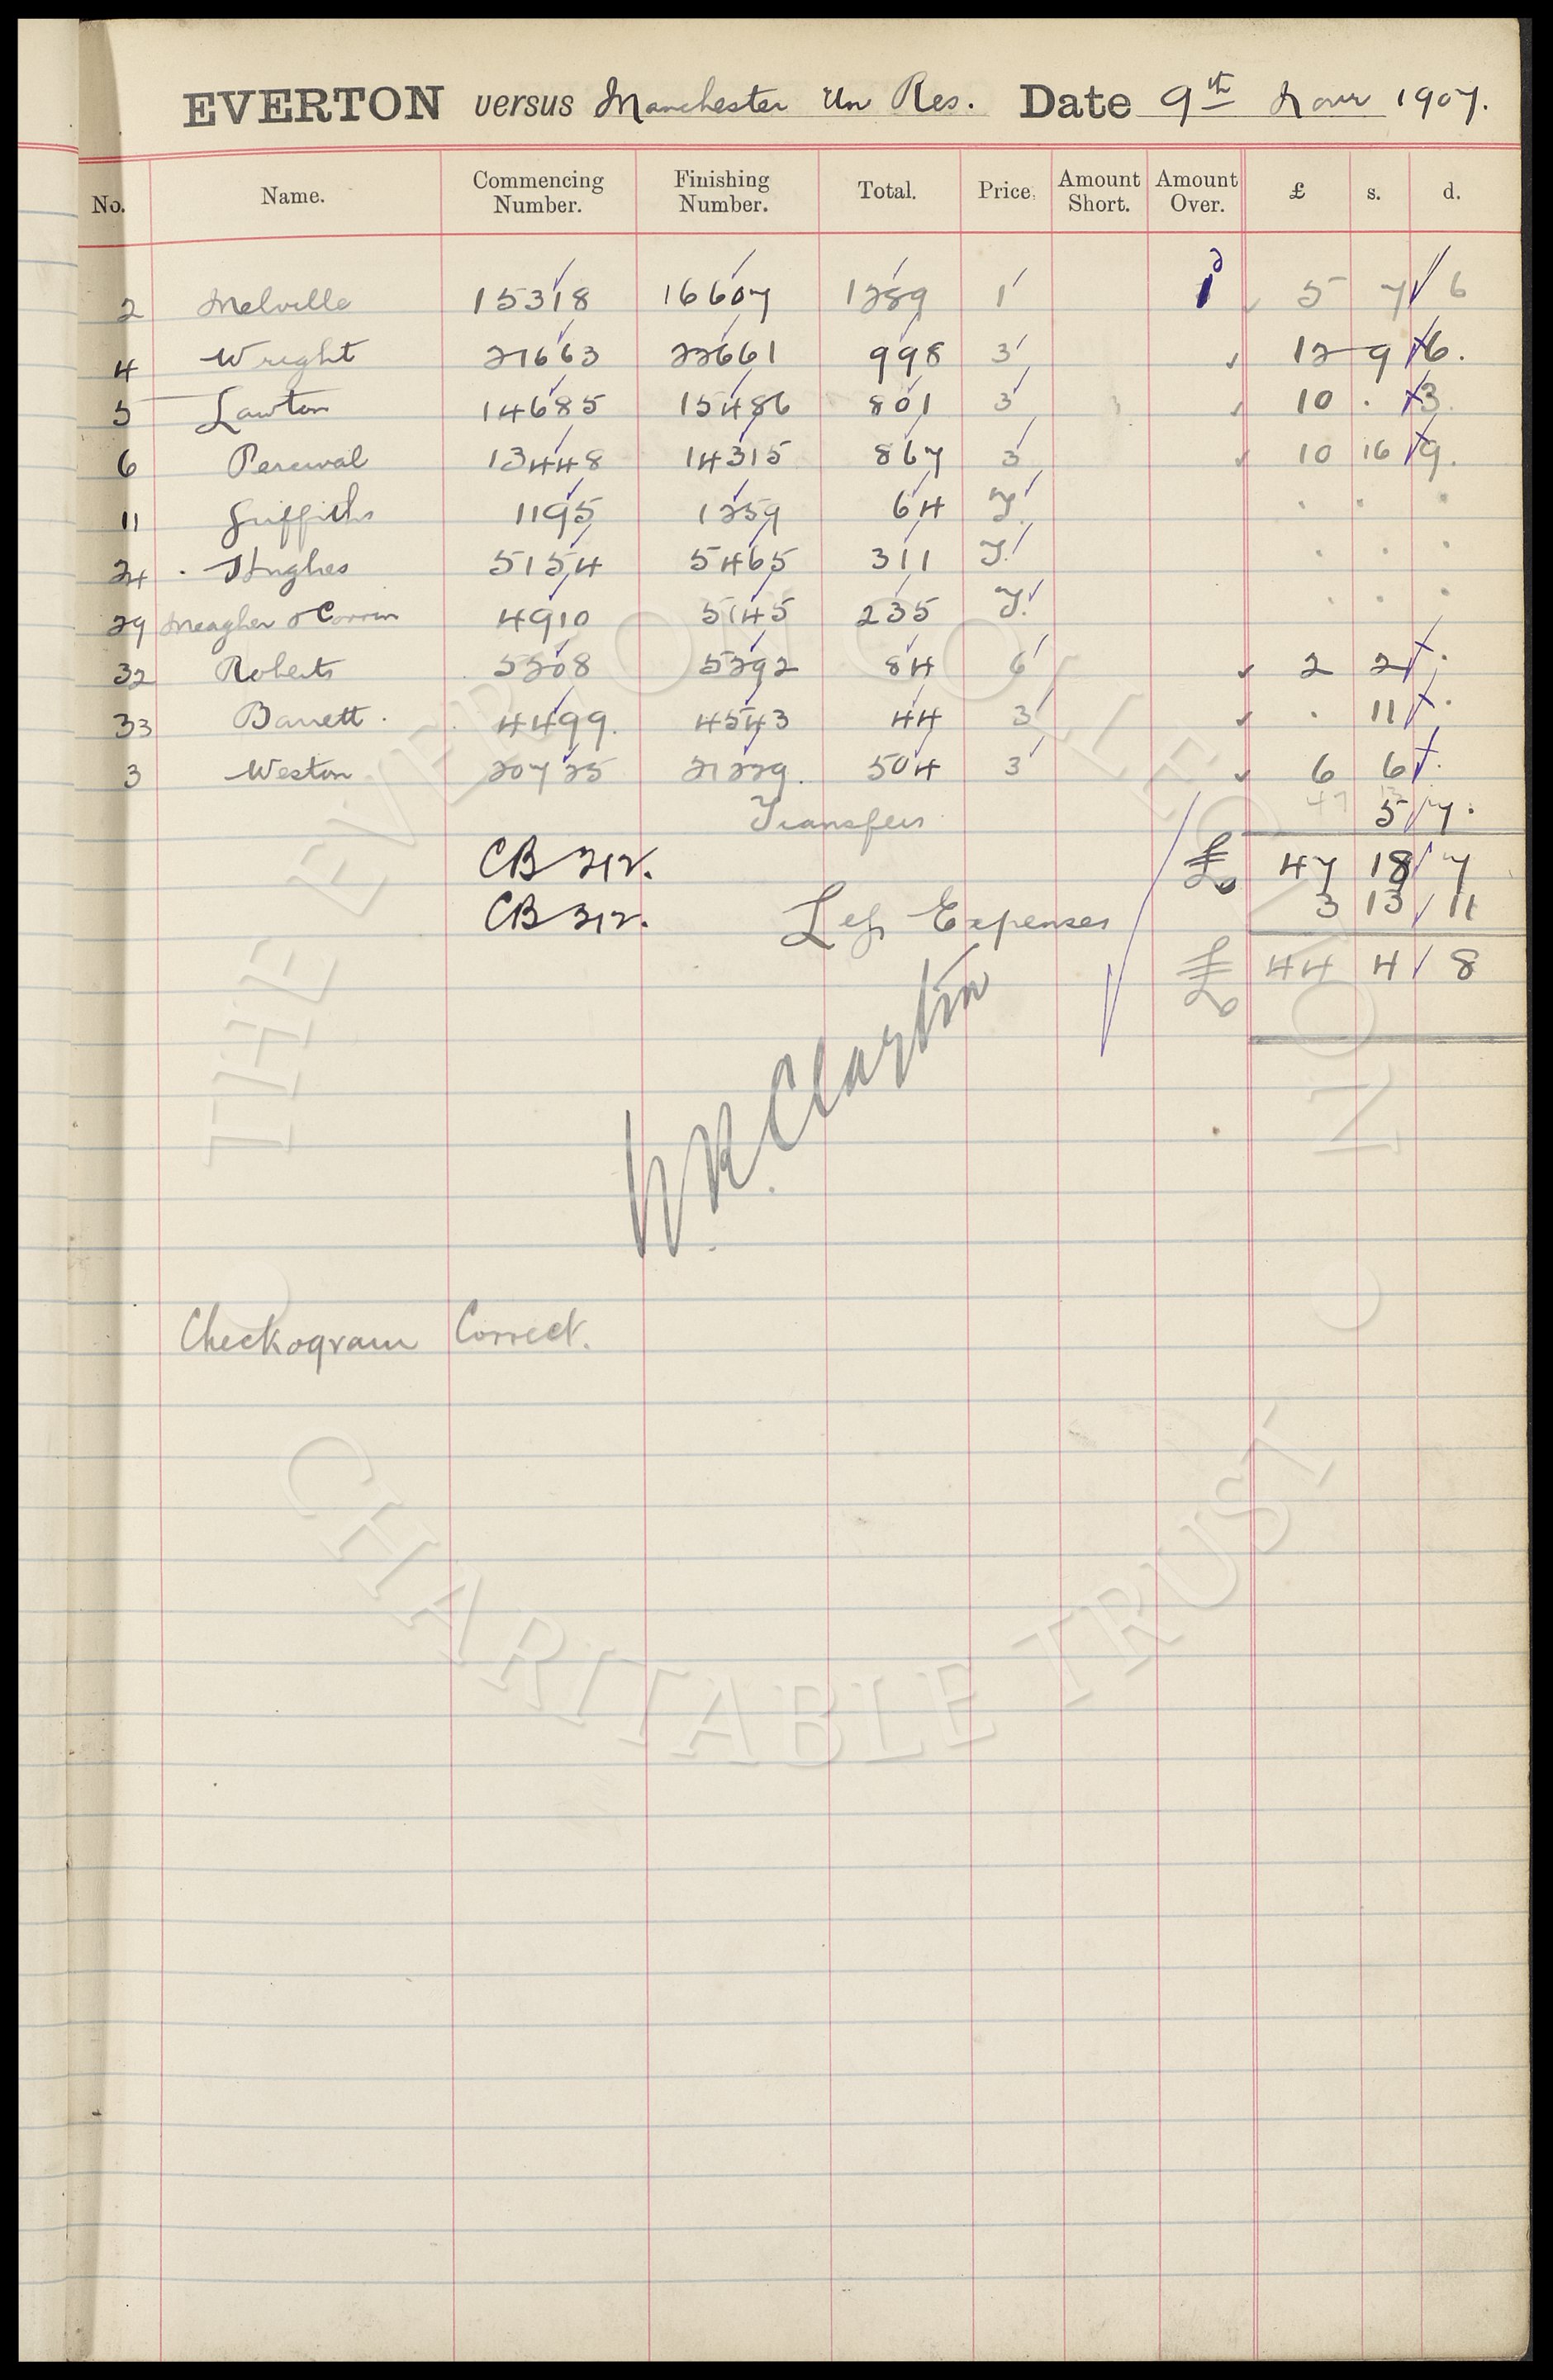 EVERTON versus Manchester Un Res. Date 9th Novr 1907.
No. Name. Commencing Number. Finishing Number. Total. Price. Amount Short. Amount Over. £ s. d.
2 Melville 15318 16607 1289 1 1d 5 7 6
4 Wright 21663 22661 998 3 12 9 6.
5 Lawton 14685 15486 801 3 10 . 3.
6 Percival 13448 14315 867 3 10 16 9.
11 Griffiths 1195 1259 64 T. . . .
24 Hughes 5154 5465 311 T. . . .
29 Meagher & Corrin 4910 5145 235 T. . . .
32 Roberts 5208 5292 84 6 2 2 .
33 Barrett 4499 4543 44 3 . 11 .
3 Weston 20725 21229 504 3 6 6 .
Transfers 5 7.
CB 212. £ 47 18 7
CB 312. Less Expenses 3 13 11
£ 44 4 8
W.R. Clayton
Checkogram Correct.
THE EVERTON COLLECTION
CHARITABLE TRUST